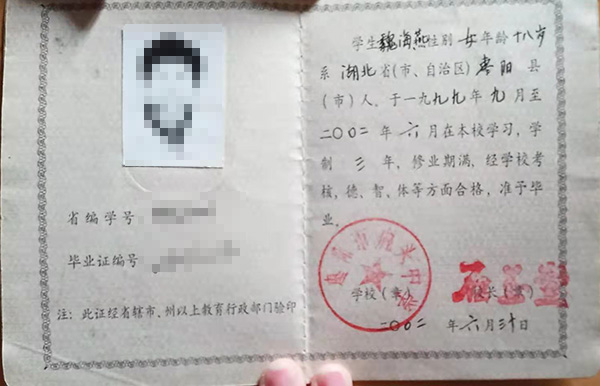 省编学号
毕业证编号
注：此证经省辖市、州以上教育行政部门验印
学生魏海燕性别 女 年龄 十八岁
系 湖北 省(市、自治区) 枣阳 县
(市)人，于一九九九年九月至
二〇〇二年 六 月在本校学习，学
制 三 年，修业期满，经学校考
核，德、智、体等方面合格，准予毕
业。
学校(章) 校长(章)
二〇〇二 年六月三十日